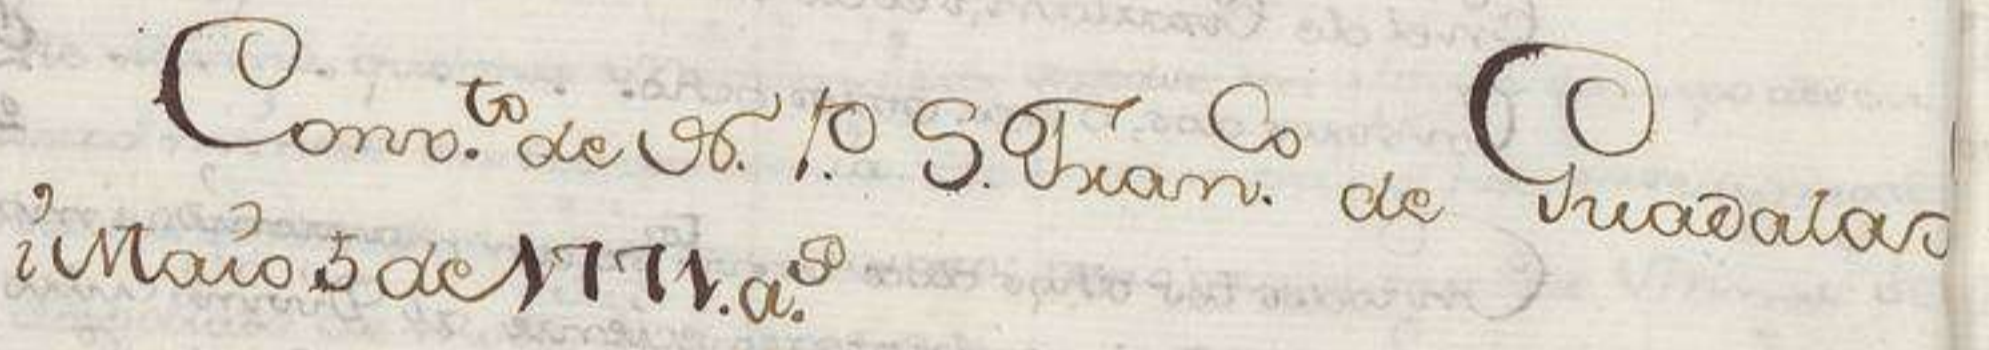 Conv.to de N. P.e S. Fran.co de Guadalax.a
i Maio 5 de 1771. a.s